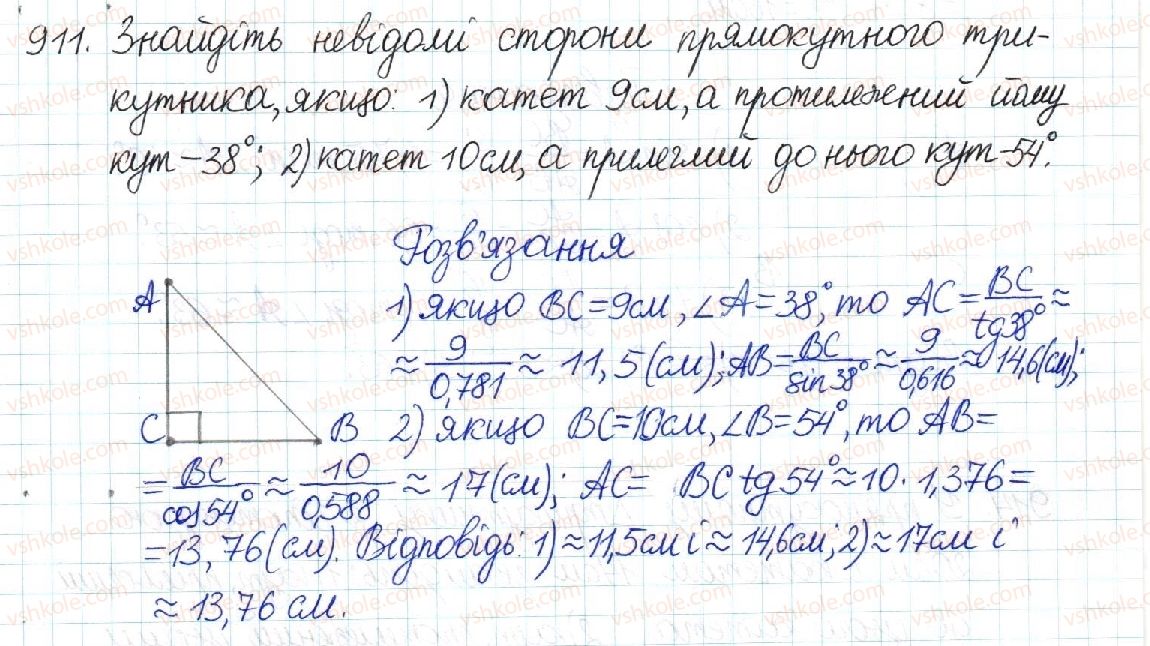 911. Знайдіть невідомі сторони прямокутного три-
кутника, якщо: 1) катет 9см, а протилежний йому
кут – 38°; 2) катет 10 см, а прилеглий до нього кут – 54°.
Розв'язання
A
1) якщо BC = 9см, ∠A = 38°, то AC = BC/tg38° ≈
≈ 9/0,781 ≈ 11,5 (см); AB = BC/sin38° ≈ 9/0,616 ≈ 14,6 (см);
C B 2) якщо BC = 10см, ∠B = 54°, то AB =
= BC/cos54° ≈ 10/0,588 ≈ 17 (см); AC = BC tg54° ≈ 10 · 1,376 =
= 13,76 (см). Відповідь: 1) ≈ 11,5см і ≈ 14,6см; 2) ≈ 17см і
≈ 13,76 см.